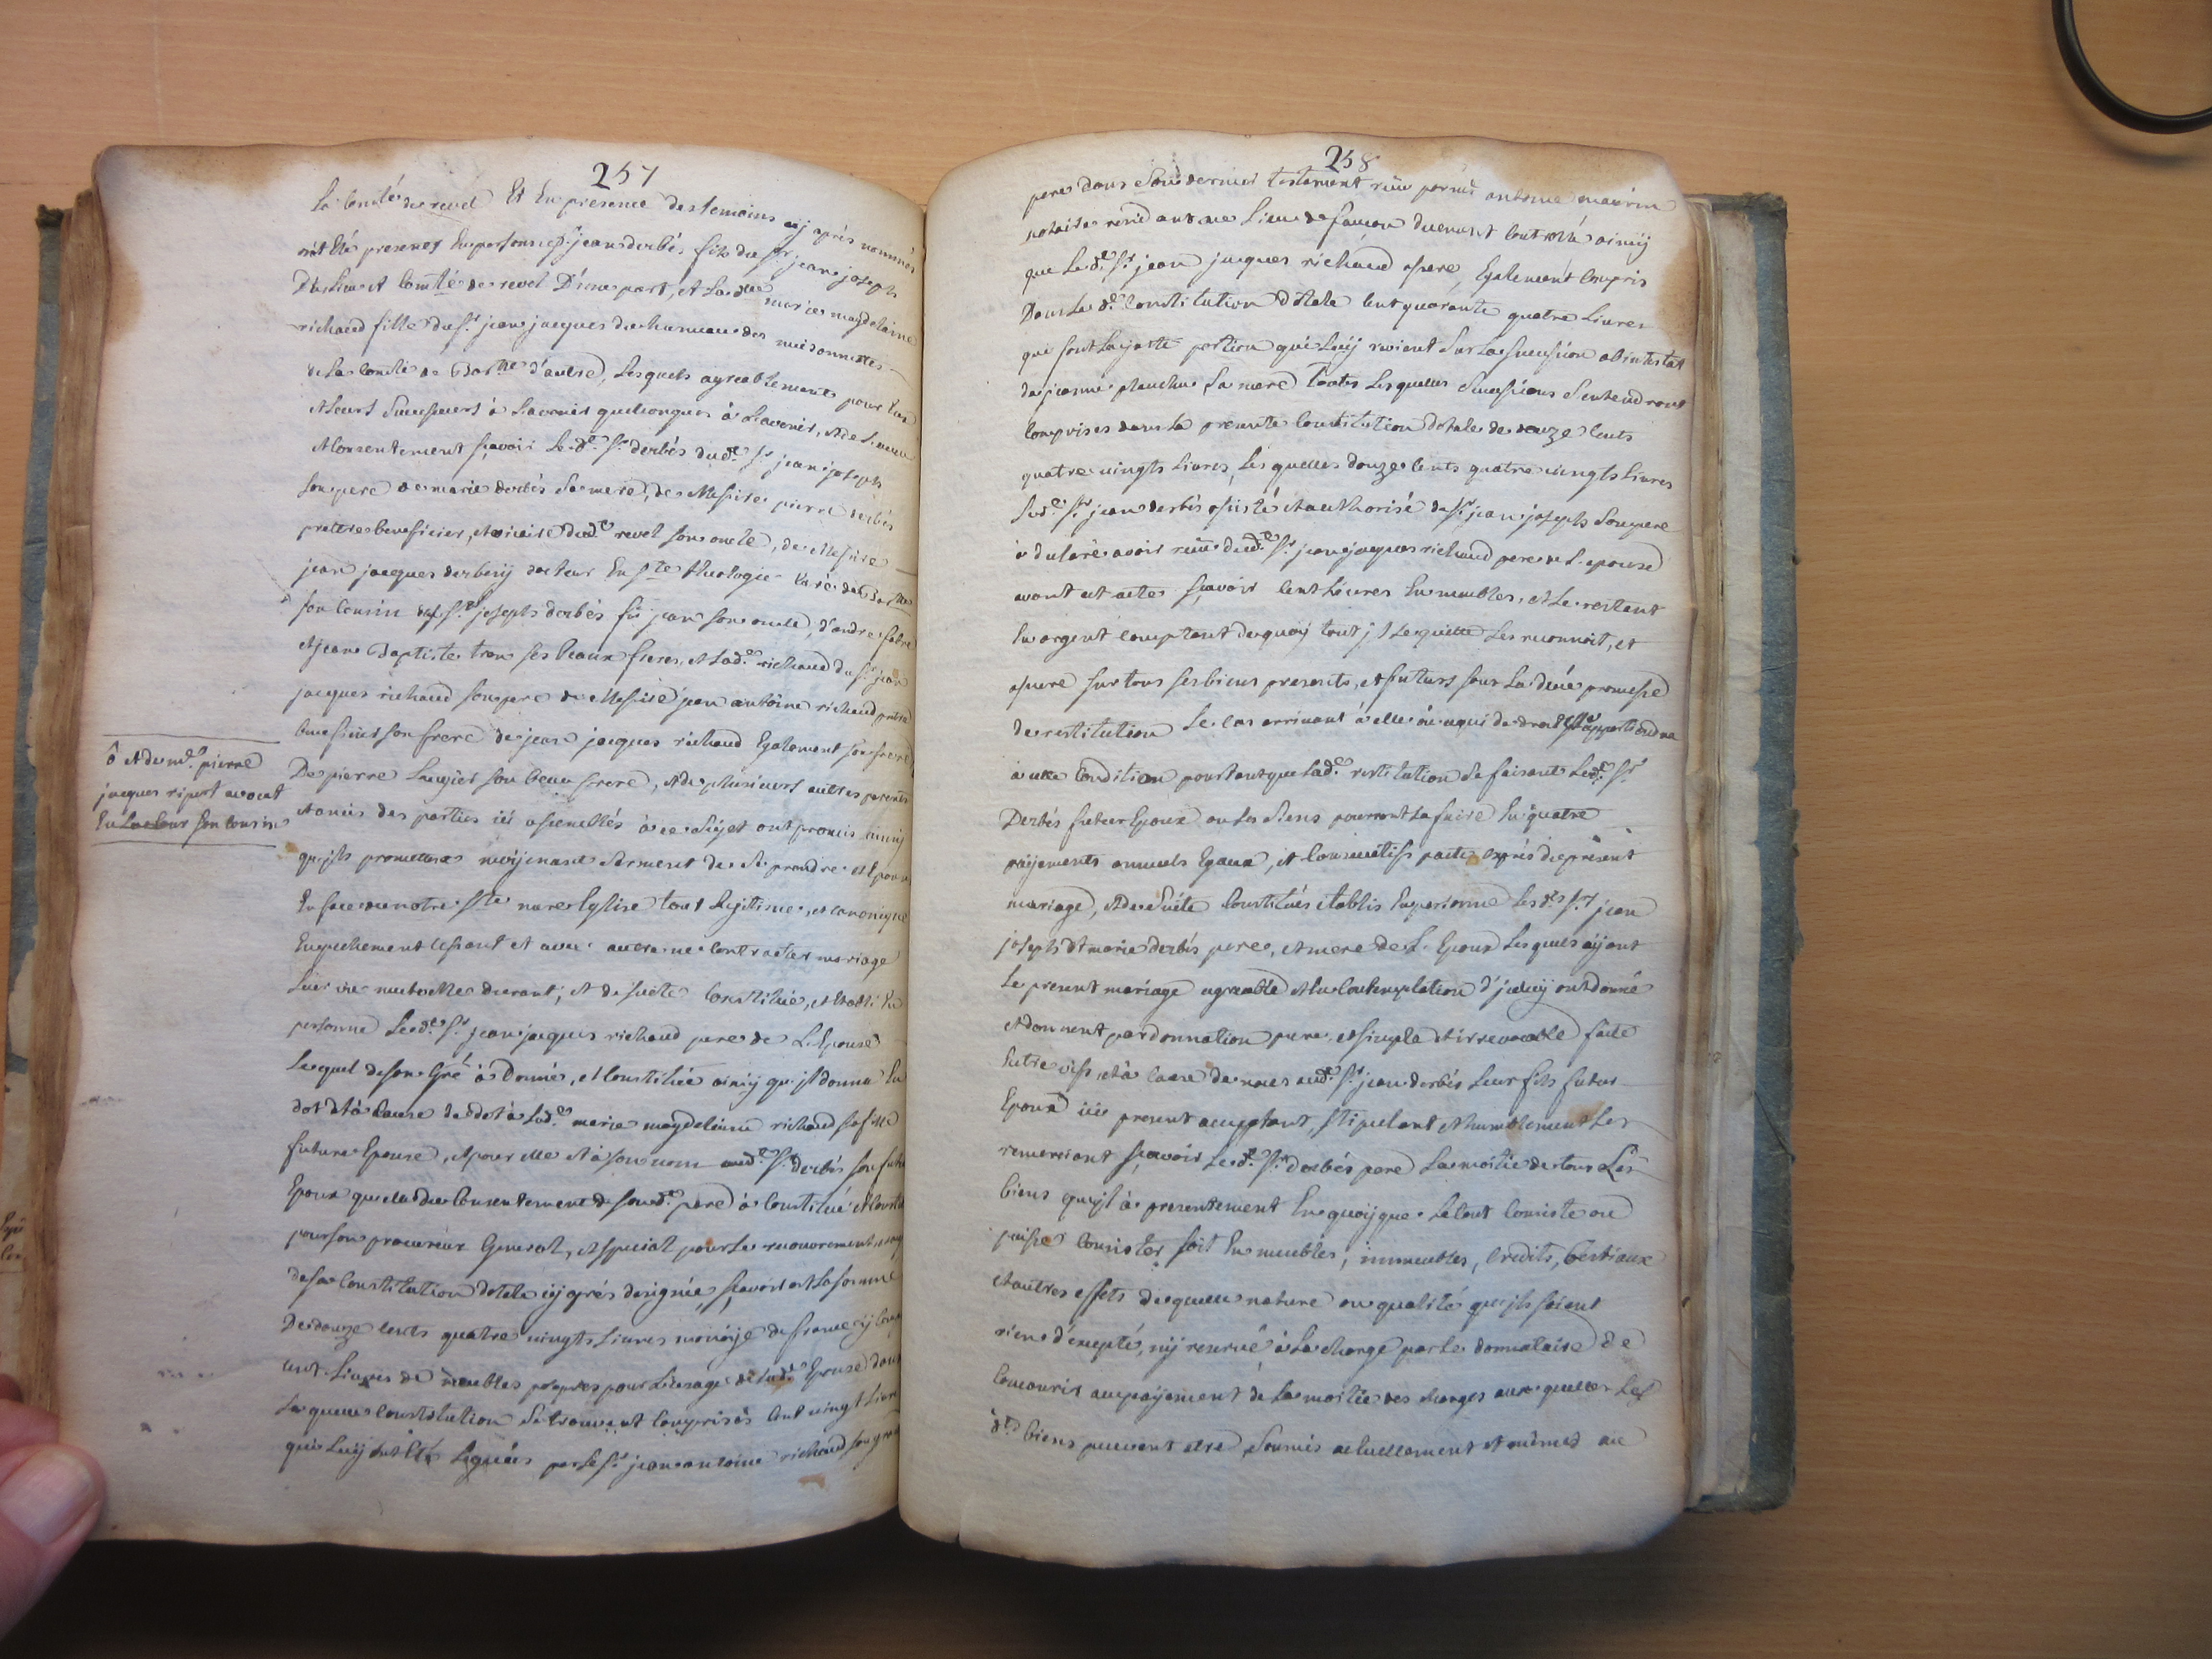 257
la comté de revel Et En presence des temoins cy aprés nommés
ont Eté presents En personne Sr. jean derbés fils du Sr jean joseph
Du lieu et Comté de revel D'une part, et La dlle marie magdelaine
richaud fille du Sr. jean jacques du hameau des maisonnettes
de la comté de Barnne d'autre, Lesquels agreablement pour Eux
et leurs successeurs à L'avenir quelconques à L'avenir, et de L'aveu
et consentement sçavoir Le dt. Sr. derbés dudt. Sr jean joseph
son pere de marie derbés sa mere, de Messire pierre derbés
prettre beneficier, et vicaire dudt revel son oncle, de Messire
jean jacques derbesy docteur En ste theologie Curé de Barnne
son Cousin du Sr. joseph derbés fû jean son oncle, d'andre fabre
et jean Baptiste tron ses beaux freres, et lade. richaud du Sr. jean
jacques richaud son pere de Messire jean antoine richaud pretre
beneficier son frere de jean jacques richaud Egalement son frere
De pierre Laugier son beau frere, et de plusieurs autres parents
et amis des parties ici assemblés à ce sujet ont promis ainsy
qu'jls promettent moÿenant serment de se prendre et Epouser
En face de notre Ste mere Eglise tout legitime, et canonique
Empechement cessant et avec autre ne contracter mariage
Leur vie mutuelle durant; et de suite Constitué, et Etabli En
personne Ledt. Sr. jean jacques richaud pere de L'Epouse
Lequel de son Gré à Donné, et Constitué ainsy qu'jl donne En
dot et à cause de dot à lade. marie magdelaine richaud sa fille
future Epouse, et pour elle et à son nom audt. Sr. derbés son futur
Epoux quelle du Consentement de sondt. pere à Constitué et Constitue
pour son procureur General, et special pour Le recouvrement
de sa Constitution dotale cy aprés designée, sçavoir est La somme
De douze cents quatre vingts Livres monoÿe de france cy Compris
cent Livres de meubles propres pour L'usage de lade. Epouse dans
Laquelle Constitution se trouvent Comprises Cent vingt Livres
qui Luy ont Eté Leguées par Le Sr. jean antoine richaud son grand
ô et de me. pierre
jacques ripert avocat
En la cour son cousin
258
pere dans son dernier testament reçu par me antoine maurin
notaire residant au Lieu de faucon duement controlé ainsy
que Le dt. Sr. jean jacques richaud assure, Egalement Compris
Dans La de. Constitution dotale cent quarante quatre Livres
qui sont La juste portion qui Luy revient sur La succession abintestat
de jeanne planche sa mere toutes Lesquelles successions s'entendront
Comprises dans La presente Constitution dotale de douze Cents
quatre vingts Livres, Lesquelles douze Cents quatre vingts Livres
Ledt. Sr jean derbés assisté et authorisé du Sr jean joseph son pere
à declaré avoir reçu dudt. Sr jean jacques richaud pere de L'epouse
avant cet acte sçavoir Cent Livres En meubles, et Le restant
En argent Comptant de quoÿ tout jl Le quitte Les reconnoit, et
assure sur tous ses biens presents, et futurs sous La deüe promesse
de restitution Le cas arrivant à elle ou à qui de droit il appartiendra
à cette Condition pourtant que Lade. restitution se faisant Ledt. Sr
Derbés futur Epoux ou les siens pourront La faire En quatre
payements annuels Egaux, et Consecutifs pacte exprés du present
mariage, et de suite Constitués établis En personne Lesds. Srs jean
joseph et marie derbés pere, et mere de L'Epoux Lesquels aÿant
Le present mariage agreable et En Contemplation d'jceluy ont donné
et donnent par donnation pure, et simple et irrevocable faite
Entre vifs, et à cause de noces audt. Sr. jean derbés Leur fils futur
Epoux icy present acceptant, stipulant et humblement Les
remerciant sçavoir Ledt. Sr. Derbés pere La moitié de tous Les
biens qu'jl à presentement En quoÿ que Le tout Consiste ou
puisse Consister soit En meubles, immeubles, Credits, bestiaux
et autres effets de quelle nature ou qualité qu'jls soient
rien d'excepté, ny reservé à La charge par Le donnataire de
Concourir au payement de La moitié des charges auxquelles Les
dts. biens peuvent etre soumis actuellement et mêmes au